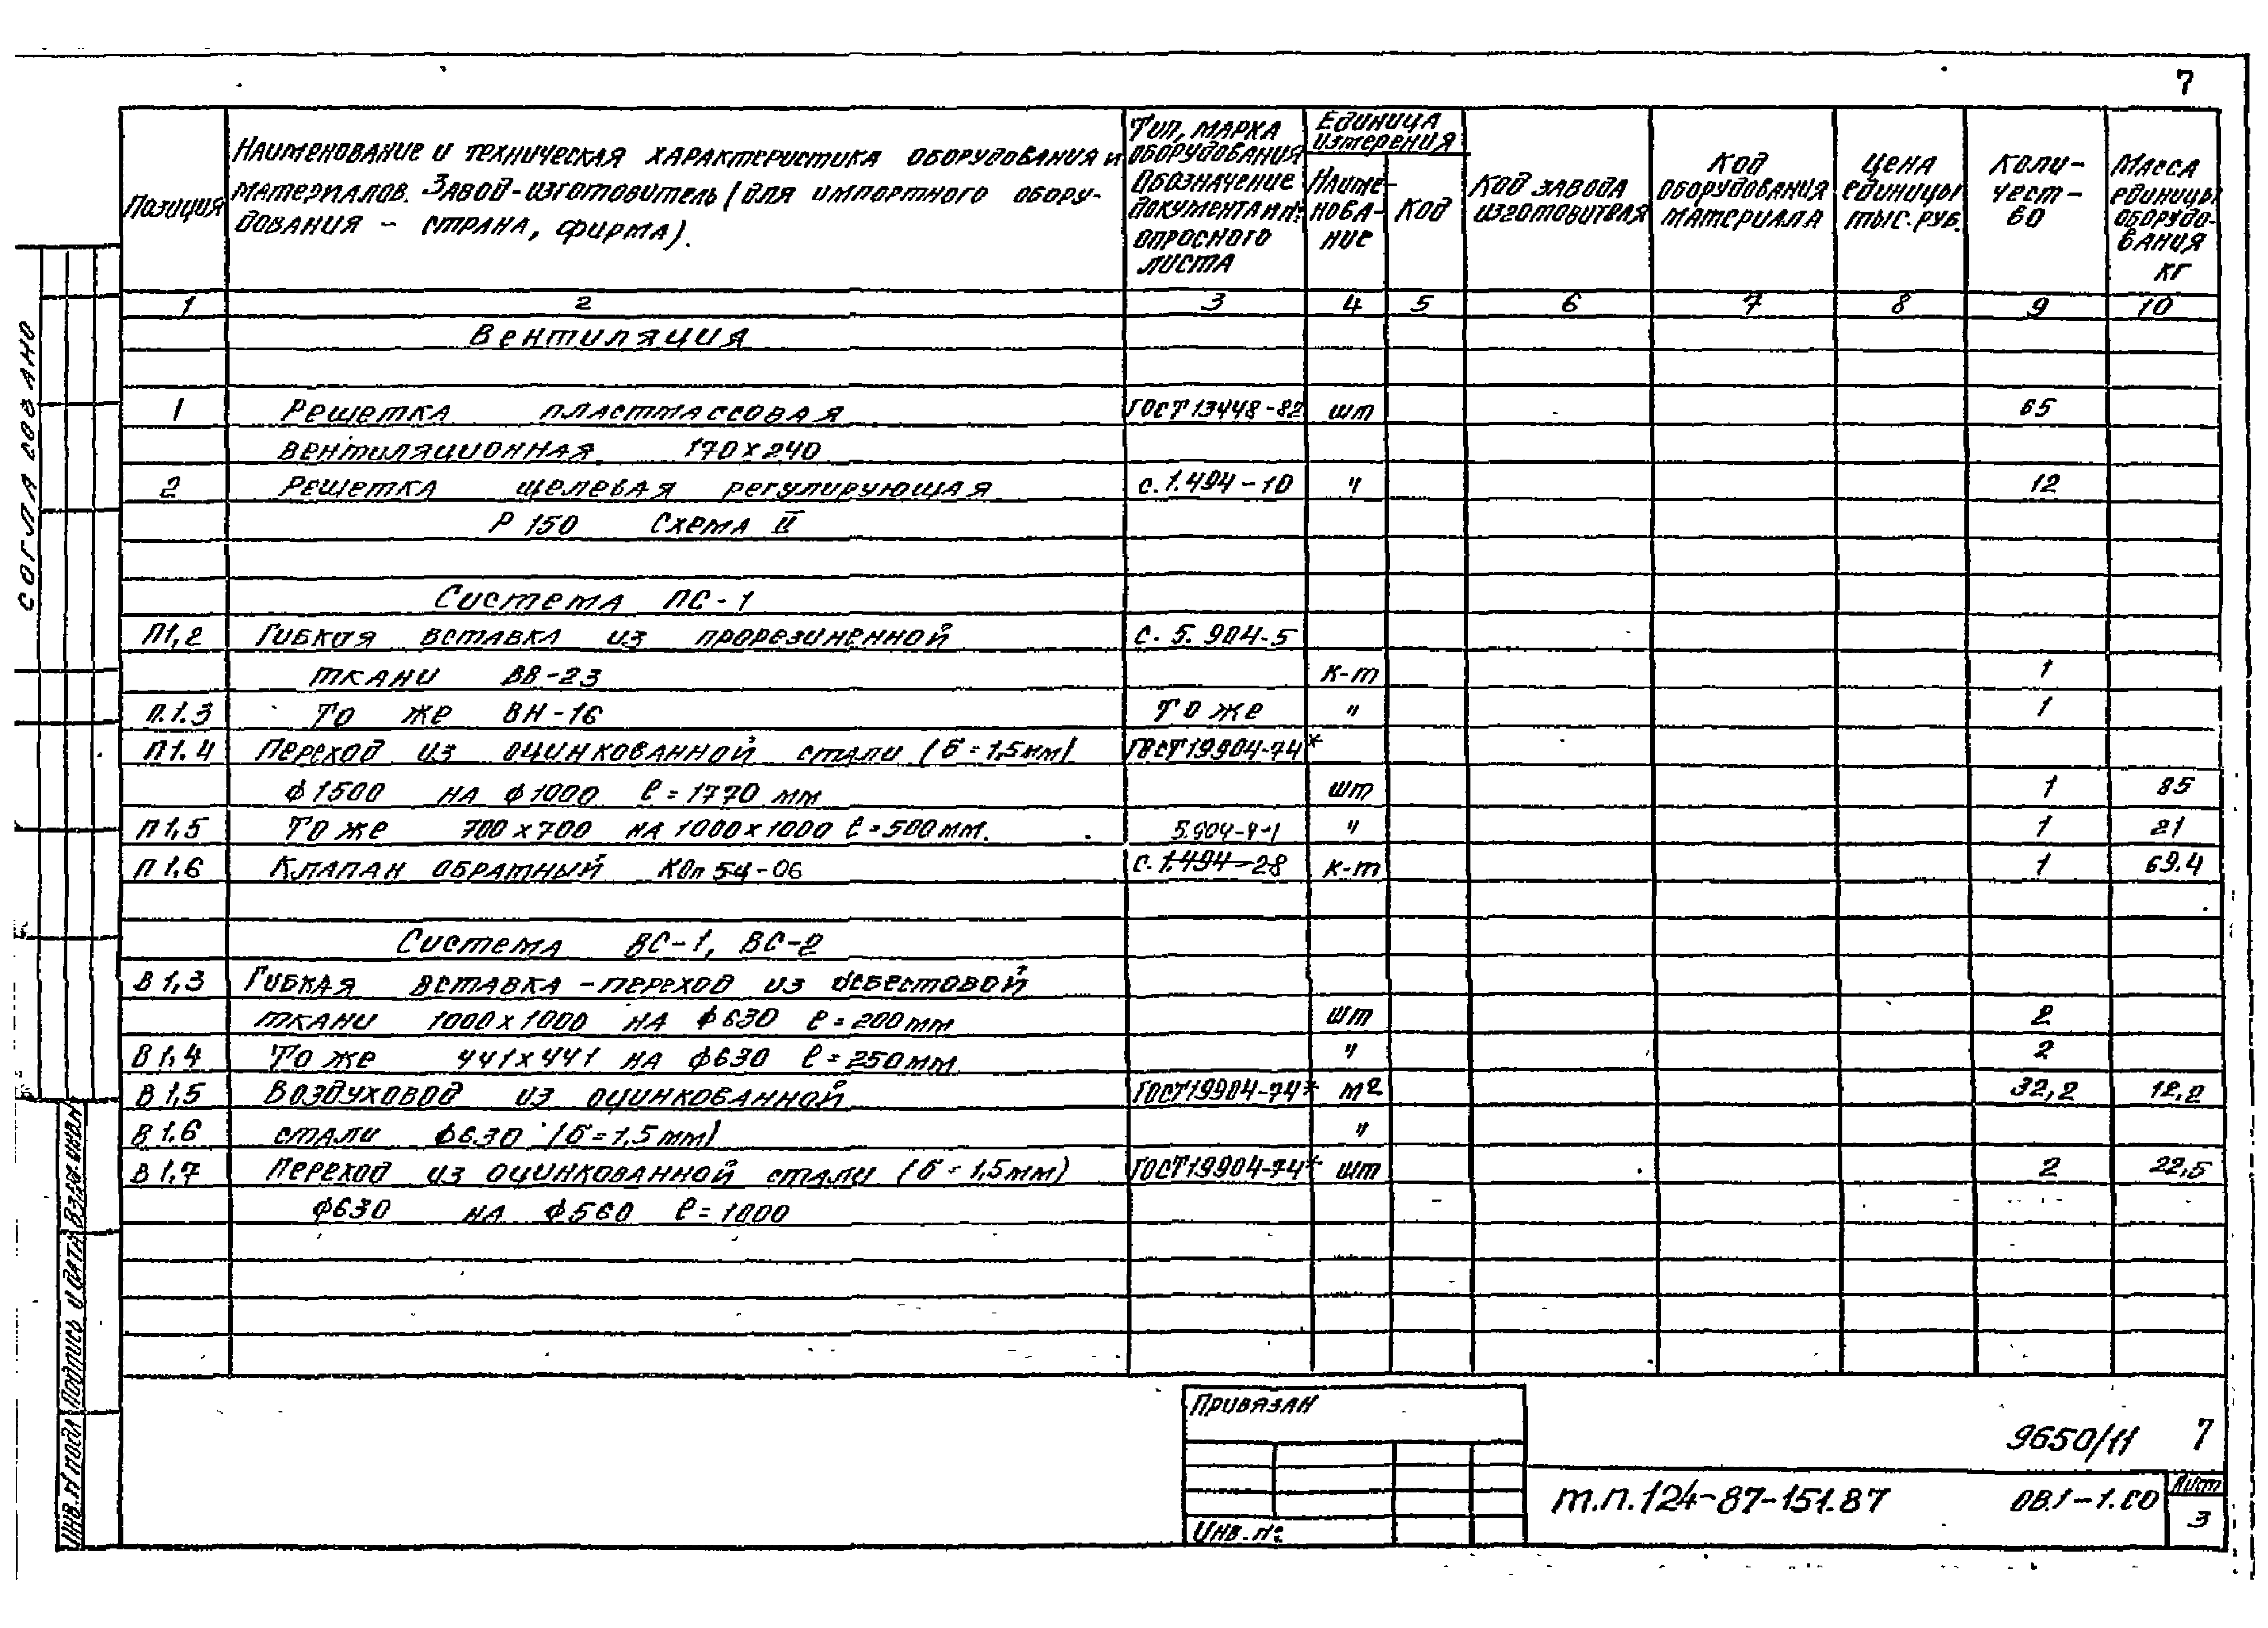 7
Позиция
Наименование и техническая характеристика оборудования и
материалов. Завод-изготовитель (для импортного обору-
дования - страна, фирма).
Тип, марка
оборудования
Обозначение
документа и №
опросного
листа
Единица
измерения
Наиме-
нова-
ние
Код
Код завода
изготовителя
Код
оборудования
материала
Цена
единицы
тыс. руб.
Коли-
чест-
во
Масса
единицы
оборудо-
вания
кг
1 2 3 4 5 6 7 8 9 10
Вентиляция
1 Решетка пластмассовая ГОСТ 13448-82 шт 65
вентиляционная 170х240
2 Решетка щелевая регулирующая с.1.494-10 " 12
Р 150 Схема II
Система ПС-1
П1,2 Гибкая вставка из прорезиненной с. 5. 904-5
ткани ВВ-23 к-т 1
П.1.3 То же ВН-16 То же " 1
П1.4 Переход из оцинкованной стали (б=1,5мм) ГОСТ19904-74*
ф1500 на ф1000 ℓ=1770 мм шт 1 85
П1,5 То же 700х700 на 1000х1000 ℓ=500мм. " 1 21
П1,6 Клапан обратный КОп 54-06 5.904-41 с. 1.494-28 к-т 1 69.4
Система ВС-1, ВС-2
В1,3 Гибкая вставка-переход из асбестовой
ткани 1000х1000 на ф630 ℓ=200мм шт 2
В1,4 То же 441х441 на ф630 ℓ=250мм " 2
В1,5 Воздуховод из оцинкованной ГОСТ19904-74* м2 32,2 12,2
В1.6 стали ф630 (б=1,5мм) "
В1,7 Переход из оцинкованной стали (б=1,5мм) ГОСТ19904-74* шт 2 22,5
ф630 на ф560 ℓ=1000
Согласовано
Взам.инв.№
Подпись и дата
Инв.№ подл
Привязан
Инв.№
9650/11 7
т.п.124-87-151.87 ОВ.1-1.СО
Лист
3